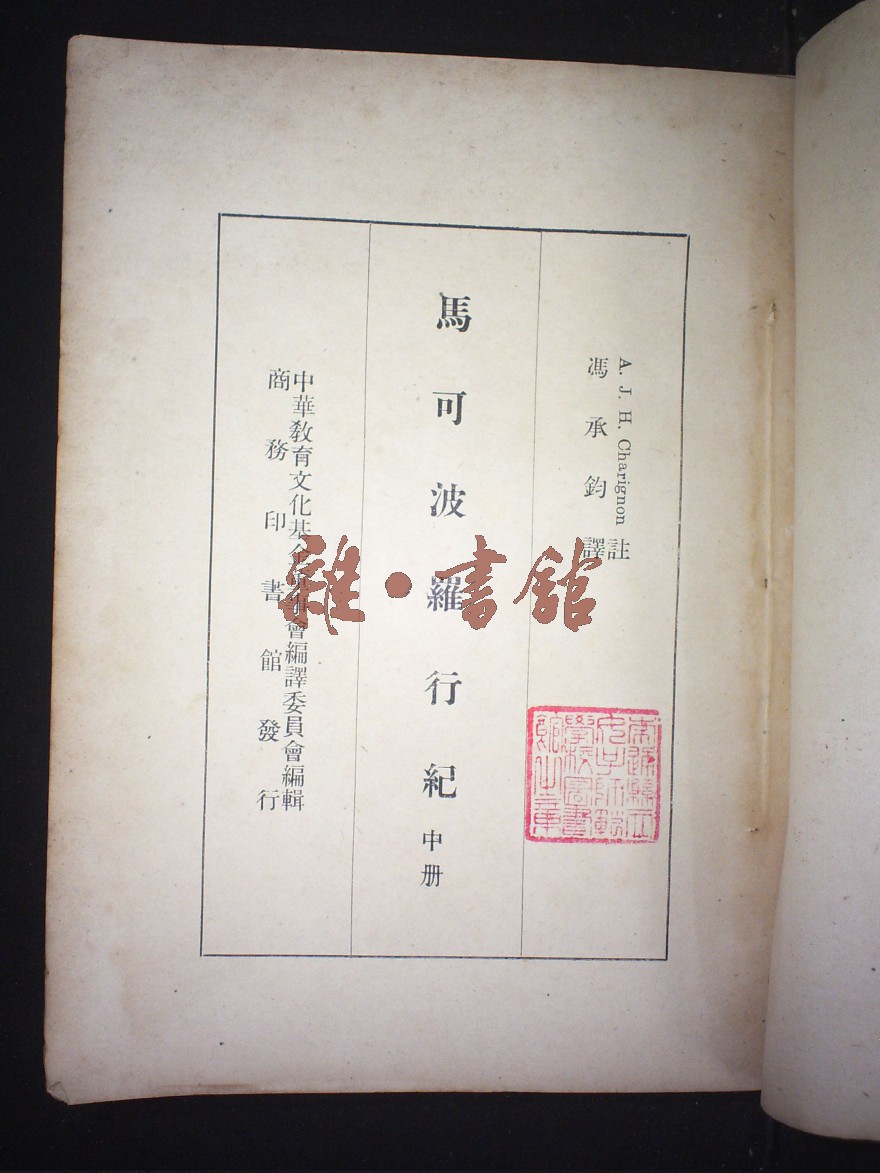 A. J. H. Charignon 註
馮承鈞譯
馬可波羅行紀 中册
中華敎育文化基金董事會編譯委員會編輯
商務印書館發行
雜·書館
南通縣立
女子師範
學校圖書
館之章